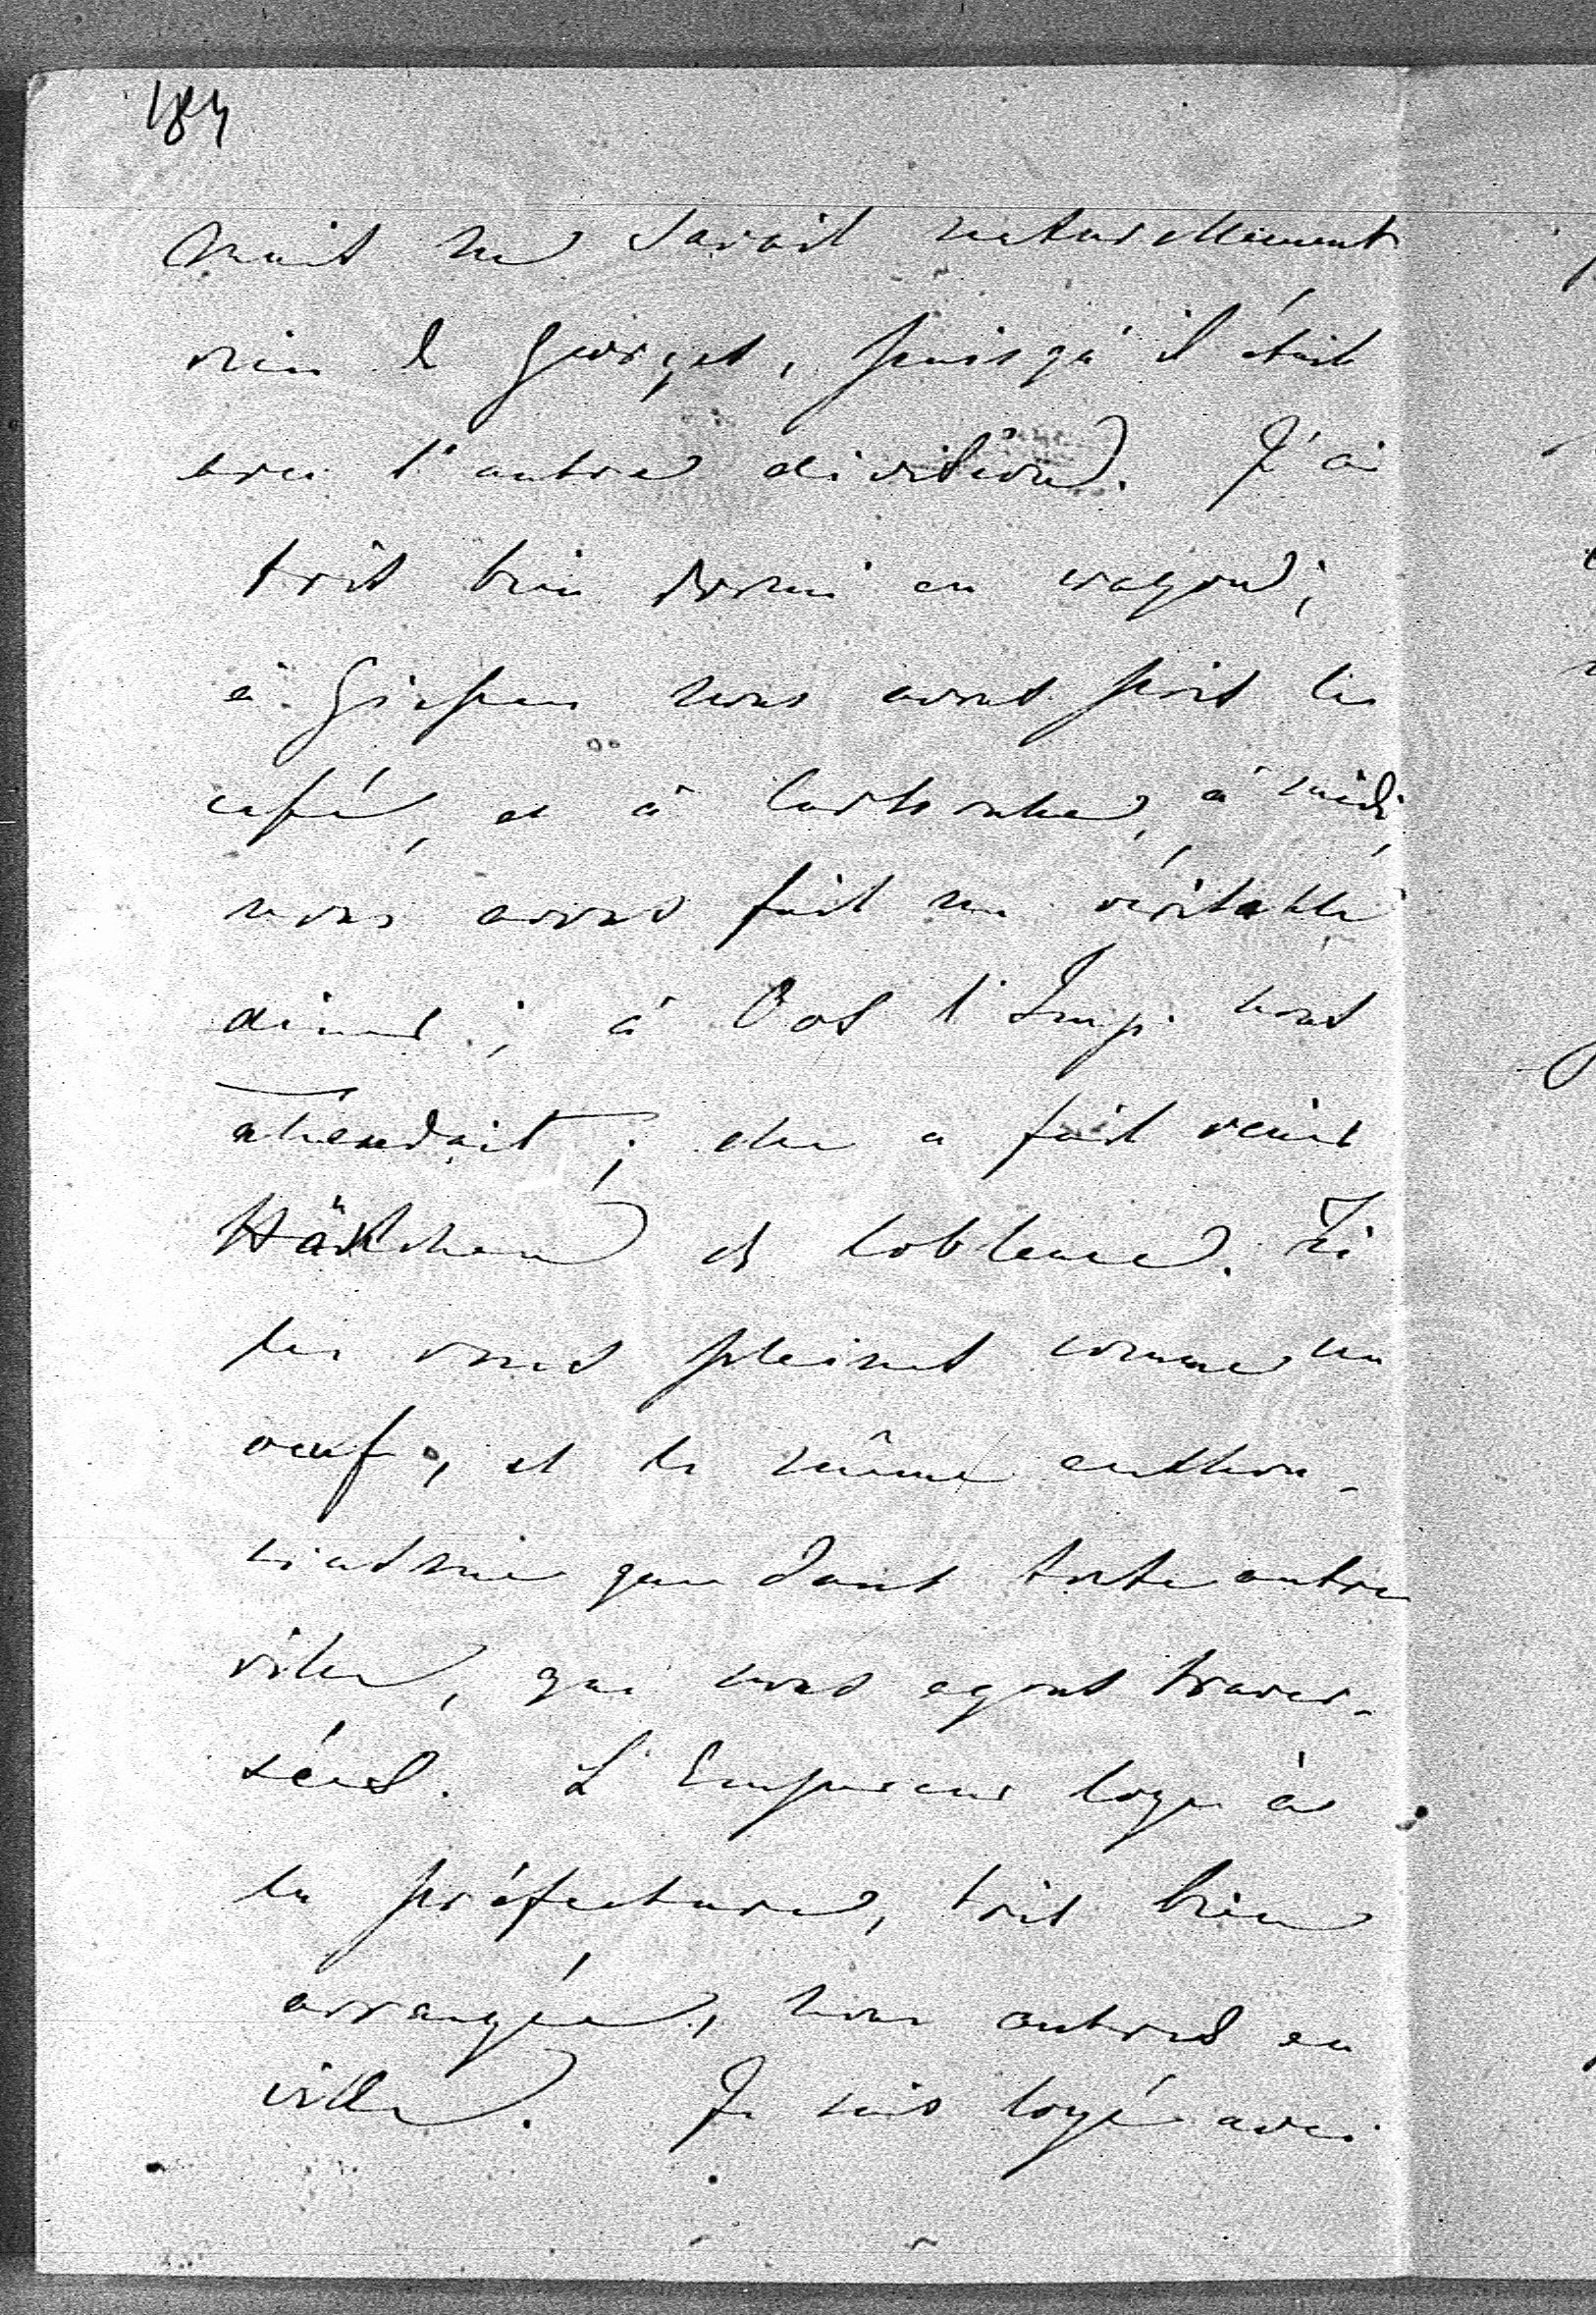 184
mais ne savait naturellement
rien de Georges, puisqu'il était
avec l'autre division. J'ai
très bien dormi en wagon;
à Giessen nous avons pris le
café, et à Carlsruhe, à midi,
nous avons fait un véritable
diner; à Oos l'Imp. nous
attendait; elle a fait venir
de Coblence. Ici
les rues pleines comme un
oeuf, et le même enthou-
siasme que dans toute autre
ville, que nous ayons traver-
sées. L'Empereur loge à
la préfecture, très bien
arrangée, nous autres en
ville. Je suis logé avec